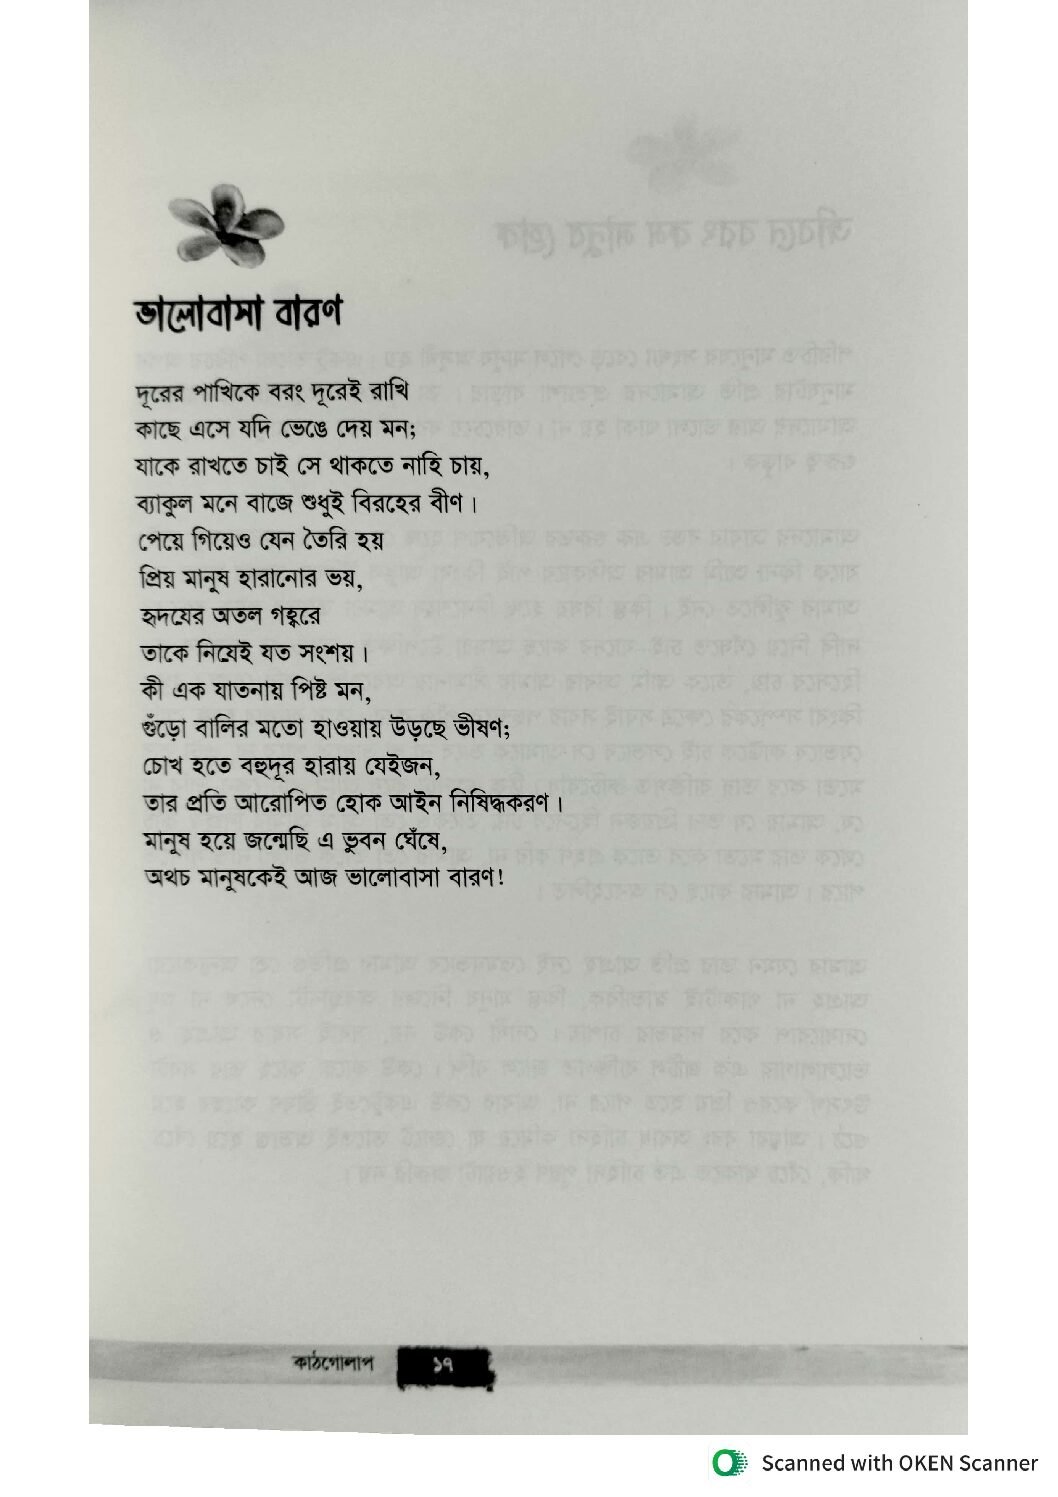 ভালোবাসা বারণ
দূরের পাখিকে বরং দূরেই রাখি
কাছে এসে যদি ভেঙে দেয় মন;
যাকে রাখতে চাই সে থাকতে নাহি চায়,
ব্যাকুল মনে বাজে শুধুই বিরহের বীণ।
পেয়ে গিয়েও যেন তৈরি হয়
প্রিয় মানুষ হারানোর ভয়,
হৃদয়ের অতল গহ্বরে
তাকে নিয়েই যত সংশয়।
কী এক যাতনায় পিষ্ট মন,
গুঁড়ো বালির মতো হাওয়ায় উড়ছে ভীষণ;
চোখ হতে বহুদূর হারায় যেইজন,
তার প্রতি আরোপিত হোক আইন নিষিদ্ধকরণ।
মানুষ হয়ে জন্মেছি এ ভুবন ঘেঁষে,
অথচ মানুষকেই আজ ভালোবাসা বারণ!
কাঠগোলাপ ১৭
Scanned with OKEN Scanner